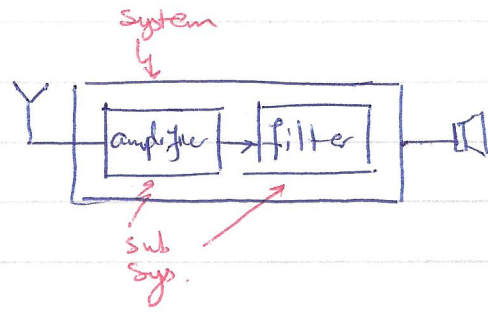 System
amplifier
filter
sub
sys.